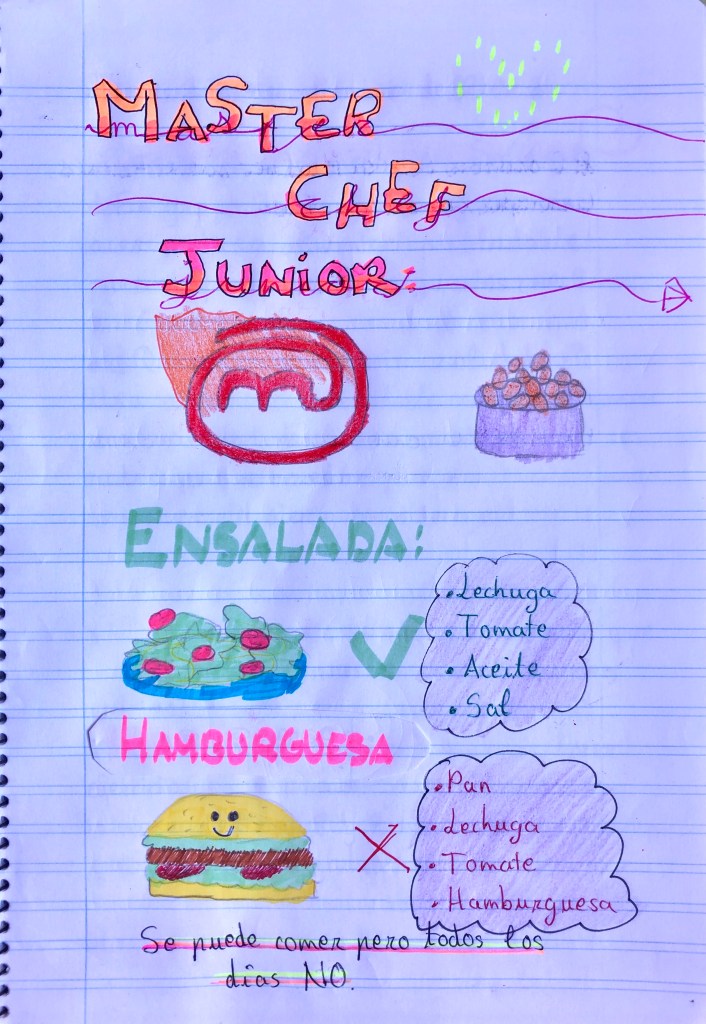 MASTER
CHEF
JUNIOR:
m
ENSALADA:
• Lechuga
• Tomate
• Aceite
• Sal
HAMBURGUESA
• Pan
• Lechuga
• Tomate
• Hamburguesa
Se puede comer pero todos los
días NO.